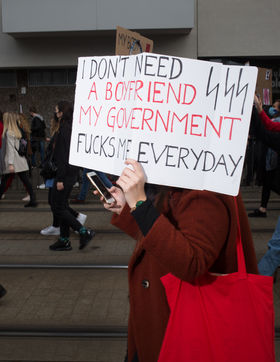 I DON'T NEED
A BOYFRIEND
MY GOVERNMENT
FUCKS ME EVERYDAY
MY